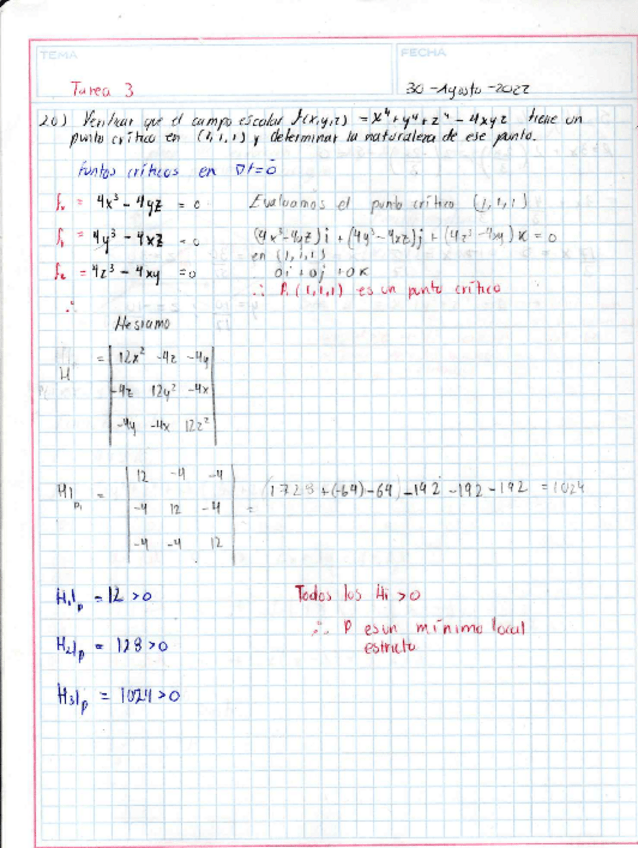 TEMA
FECHA
Tarea 3
30 - Agosto - 2022
20) Verificar que el campo escalar f(x,y,z) = x⁴+y⁴+z⁴ - 4xyz tiene un
punto crítico en (1,1,1) y determinar la naturaleza de ese punto.
Puntos críticos en ∇f=0̄
= 4x³ - 4yz = 0
Evaluamos el punto crítico (1,1,1)
= 4y³ - 4xz = 0
(4x³-4yz)i + (4y³-4xz)j + (4z³-4xy)k = 0
en (1,1,1)
= 4z³ - 4xy = 0
0i + 0j + 0k
∴ P₁(1,1,1) es un punto crítico
∴
Hesiano
H = | 12x² -4z -4y |
| -4z 12y² -4x |
| -4y -4x 12z² |
H|p₁ = | 12 -4 -4 |
| -4 12 -4 | = (1728+(-64)-64)-192-192-192 = 1024
| -4 -4 12 |
H₁|p = 12 >0
Todos los Hi >0
∴ P es un mínimo local
estricto
H₂|p = 128 >0
H₃|p = 1024 >0